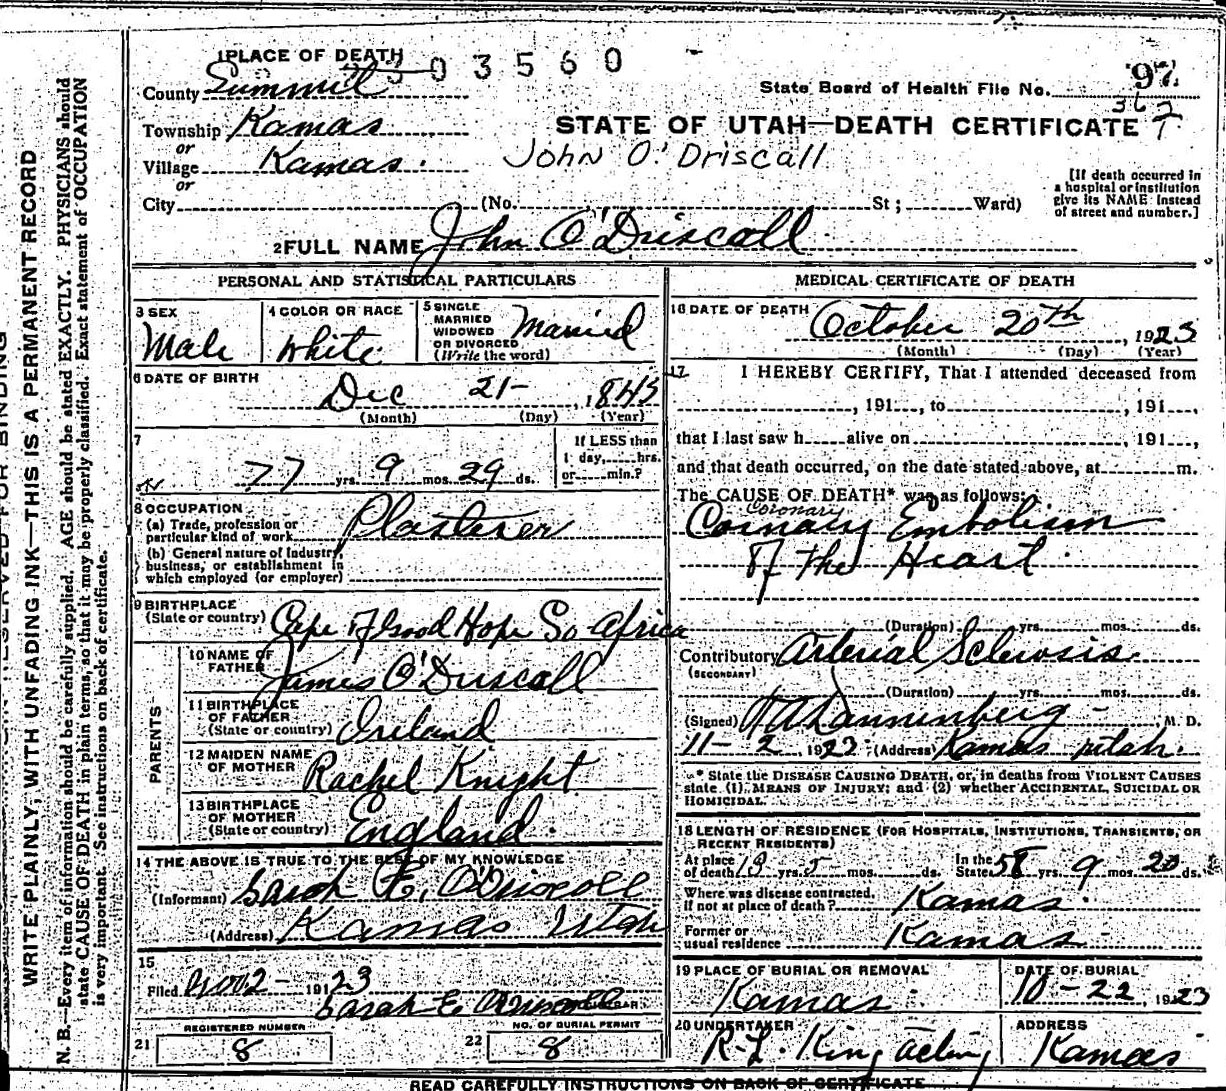 1 PLACE OF DEATH
303560
County Summit
State Board of Health File No. 97
367
Township Kamas
STATE OF UTAH—DEATH CERTIFICATE
or
Village Kamas.
John O.'Driscall
or
[If death occurred in
a hospital or institution
give its NAME instead
of street and number.]
City (No. St; Ward)
2 FULL NAME John O'Driscoll
PERSONAL AND STATISTICAL PARTICULARS
3 SEX
Male
4 COLOR OR RACE
White
5 SINGLE
MARRIED
WIDOWED
OR DIVORCED
(Write the word)
Married
6 DATE OF BIRTH
Dec 21- , 1845
(Month) (Day) (Year)
7
77 yrs. 9 mos. 29 ds.
If LESS than
1 day, hrs.
or min.?
8 OCCUPATION
(a) Trade, profession or
particular kind of work Plasterer
(b) General nature of Industry,
business, or establishment in
which employed (or employer)
9 BIRTHPLACE
(State or country) Cape of Good Hope So Africa
PARENTS
10 NAME OF
FATHER James O'Driscoll
11 BIRTHPLACE
OF FATHER
(State or country) Ireland
12 MAIDEN NAME
OF MOTHER Rachel Knight
13 BIRTHPLACE
OF MOTHER
(State or country) England.
14 THE ABOVE IS TRUE TO THE BEST OF MY KNOWLEDGE
(Informant) Sarah E. O'Driscoll
(Address) Kamas Utah
15
Filed Nov 2 - 191 23
Sarah E O'Driscoll
REGISTERED NUMBER
21 8
NO. OF BURIAL PERMIT
22 8
MEDICAL CERTIFICATE OF DEATH
16 DATE OF DEATH October 20th , 1923
(Month) (Day) (Year)
17 I HEREBY CERTIFY, That I attended deceased from
, 191 , to , 191 ,
that I last saw h alive on , 191 ,
and that death occurred, on the date stated above, at m.
The CAUSE OF DEATH* was as follows:
Coronary
Cornary Embolism
Of the Heart.
(Duration) yrs. mos. ds.
Contributory Arterial Sclerosis
(SECONDARY)
(Duration) yrs. mos. ds.
(Signed) Dannenberg - , M. D.
11- 2 , 1922 (Address) Kamas Utah.
* State the DISEASE CAUSING DEATH, or, in deaths from VIOLENT CAUSES
state (1) MEANS OF INJURY; and (2) whether ACCIDENTAL, SUICIDAL OR
HOMICIDAL.
18 LENGTH OF RESIDENCE (FOR HOSPITALS, INSTITUTIONS, TRANSIENTS, OR
RECENT RESIDENTS)
At place
of death yrs. mos. ds.
In the
State 58 yrs. 9 mos. 20 ds.
Where was disease contracted,
If not at place of death? Kamas.
Former or
usual residence Kamas
19 PLACE OF BURIAL OR REMOVAL
Kamas
DATE OF BURIAL
10-22, 1923
20 UNDERTAKER
R. L. King acting
ADDRESS
Kamas
READ CAREFULLY INSTRUCTIONS ON BACK OF CERTIFICATE
WRITE PLAINLY, WITH UNFADING INK—THIS IS A PERMANENT RECORD
N. B.—Every item of information should be carefully supplied. AGE should be stated EXACTLY. PHYSICIANS should
state CAUSE OF DEATH in plain terms, so that it may be properly classified. Exact statement of OCCUPATION
is very important. See instructions on back of certificate.
RESERVED FOR BINDING